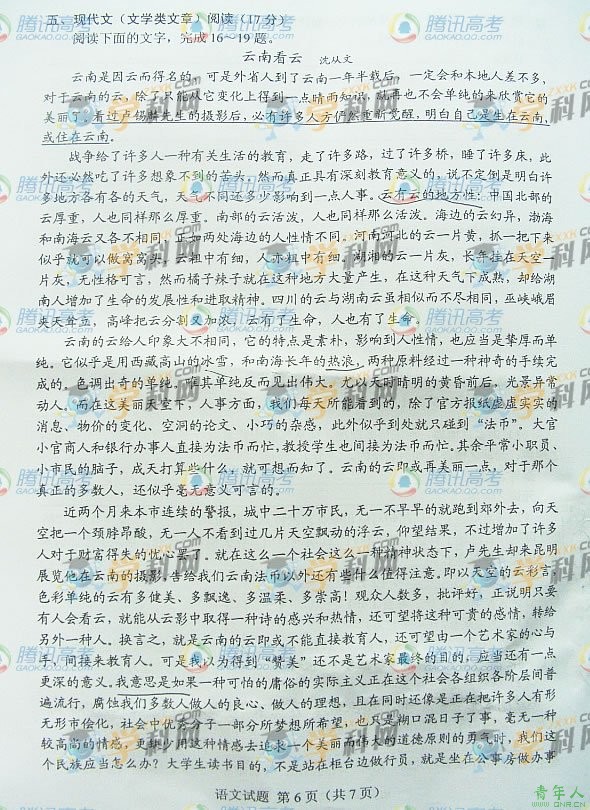 五、现代文（文学类文章）阅读（17分）
阅读下面的文字，完成16～19题。
云南看云 沈从文
云南是因云而得名的，可是外省人到了云南一年半载后，一定会和本地人差不多，
对于云南的云，除了只能从它变化上得到一点晴雨知识，就再也不会单纯的来欣赏它的
美丽了。看过卢锡麟先生的摄影后，必有许多人方俨然重新觉醒，明白自己是生在云南，
或住在云南。
战争给了许多人一种有关生活的教育，走了许多路，过了许多桥，睡了许多床，此
外还必然吃了许多想象不到的苦头。然而真正具有深刻教育意义的，说不定倒是明白许
多地方各有各的天气，天气不同还多少影响到一点人事。云有云的地方性：中国北部的
云厚重，人也同样那么厚重。南部的云活泼，人也同样那么活泼。海边的云幻异，渤海
和南海云又各不相同，正如两处海边的人性情不同。河南河北的云一片黄，抓一把下来
似乎就可以做窝窝头，云粗中有细，人亦粗中有细。湖湘的云一片灰，长年挂在天空一
片灰，无性格可言，然而橘子辣子就在这种地方大量产生，在这种天气下成熟，却给湖
南人增加了生命的发展性和进取精神。四川的云与湖南云虽相似而不尽相同，巫峡峨眉
夹天耸立，高峰把云分割又加浓，云有了生命，人也有了生命。
云南的云给人印象大不相同，它的特点是素朴，影响到人性情，也应当是挚厚而单
纯。它似乎是用西藏高山的冰雪，和南海长年的热浪，两种原料经过一种神奇的手续完
成的。色调出奇的单纯。惟其单纯反而见出伟大。尤以天时晴明的黄昏前后，光景异常
动人。而在这美丽天空下，人事方面，我们每天所能看到的，除了官方报纸虚虚实实的
消息、物价的变化、空洞的论文、小巧的杂感，此外似乎到处就只碰到“法币”。大官
小官商人和银行办事人直接为法币而忙，教授学生也间接为法币而忙。其余平常小职员、
小市民的脑子，成天打算些什么，就可想而知了。云南的云即或再美丽一点，对于那个
真正的多数人，还似乎毫无意义可言的。
近两个月来本市连续的警报，城中二十万市民，无一不早早的就跑到郊外去，向天
空把一个颈脖昂酸，无一人不看到过几片天空飘动的浮云，仰望结果，不过增加了许多
人对于财富得失的忧心罢了。就在这么一个社会这么一种精神状态下，卢先生却来昆明
展览他在云南的摄影，告给我们云南法币以外还有些什么值得注意。即以天空的云彩言，
色彩单纯的云有多健美、多飘逸、多温柔、多崇高！观众人数多，批评好，正说明只要
有人会看云，就能从云影中取得一种诗的感兴和热情，还可望将这种可贵的感情，转给
另外一种人。换言之，就是云南的云即或不能直接教育人，还可望由一个艺术家的心与
手，间接来教育人。可是我以为得到“赞美”还不是艺术家最终的目的，应当还有一点
更深的意义。我意思是如果一种可怕的庸俗的实际主义正在这个社会各组织各阶层间普
遍流行，腐蚀我们多数人做人的良心、做人的理想，且在同时还像是正在把许多人有形
无形市侩化，社会中优秀分子一部分所梦想所希望，也只是糊口混日子了事，毫无一种
较高尚的情感，更缺少用这种情感去追求一个美丽而伟大的道德原则的勇气时，我们这
个民族应当怎么办？大学生读书目的，不是站在柜台边做行员，就是坐在公事房做办事
语文试题 第6页（共7页）
青年人
www.QNR.cn